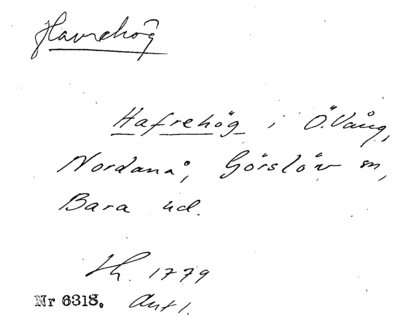 Havrehög
Hafrehög i Ö. Vång,
Nordanå, Görslöv sn,
Bara hd.
Lh. 1779
Nr 6318. Akt 1.